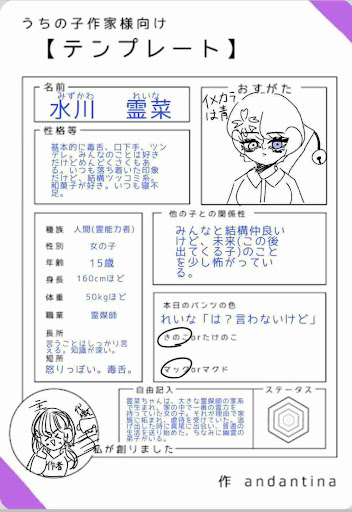 うちの子作家様向け
【テンプレート】
名前
みずかわ れいな
水川 霊菜
おすがた
イメカラ
は青
性格等
基本的に毒舌、口下手、ツン
デレ。みんなのことは好き
だけどめんどくさくもあ
る。いつも落ち着いた印象
だけど、結構ツッコミ系。
和菓子が好き。いつも寝不
足。
種族 人間(霊能力者)
性別 女の子
年齢 15歳
身長 160cmほど
体重 50kgほど
職業 霊媒師
長所
言うことはしっかり言
える。知識が深い。
短所
怒りっぽい。毒舌。
他の子との関係性
みんなと結構仲良い
けど、未来(この後
出てくる子)のこと
を少し怖がってい
る。
本日のパンツの色
れいな「は?言わないけど」
きのこorたけのこ
マックorマクド
自由記入
霊菜ちゃんは、大きな霊媒師の家系
で生まれ、家の中で一番の霊力を
持っていた女の子。それが理由で家
族に妬まれ、虐待を受けていた。逃
げ出した時に真尾に出会い、普通の
生活を送り始めた。ちなみに幽霊の
弟子がいる。
ステータス
作者
私が創りました
作 andantina